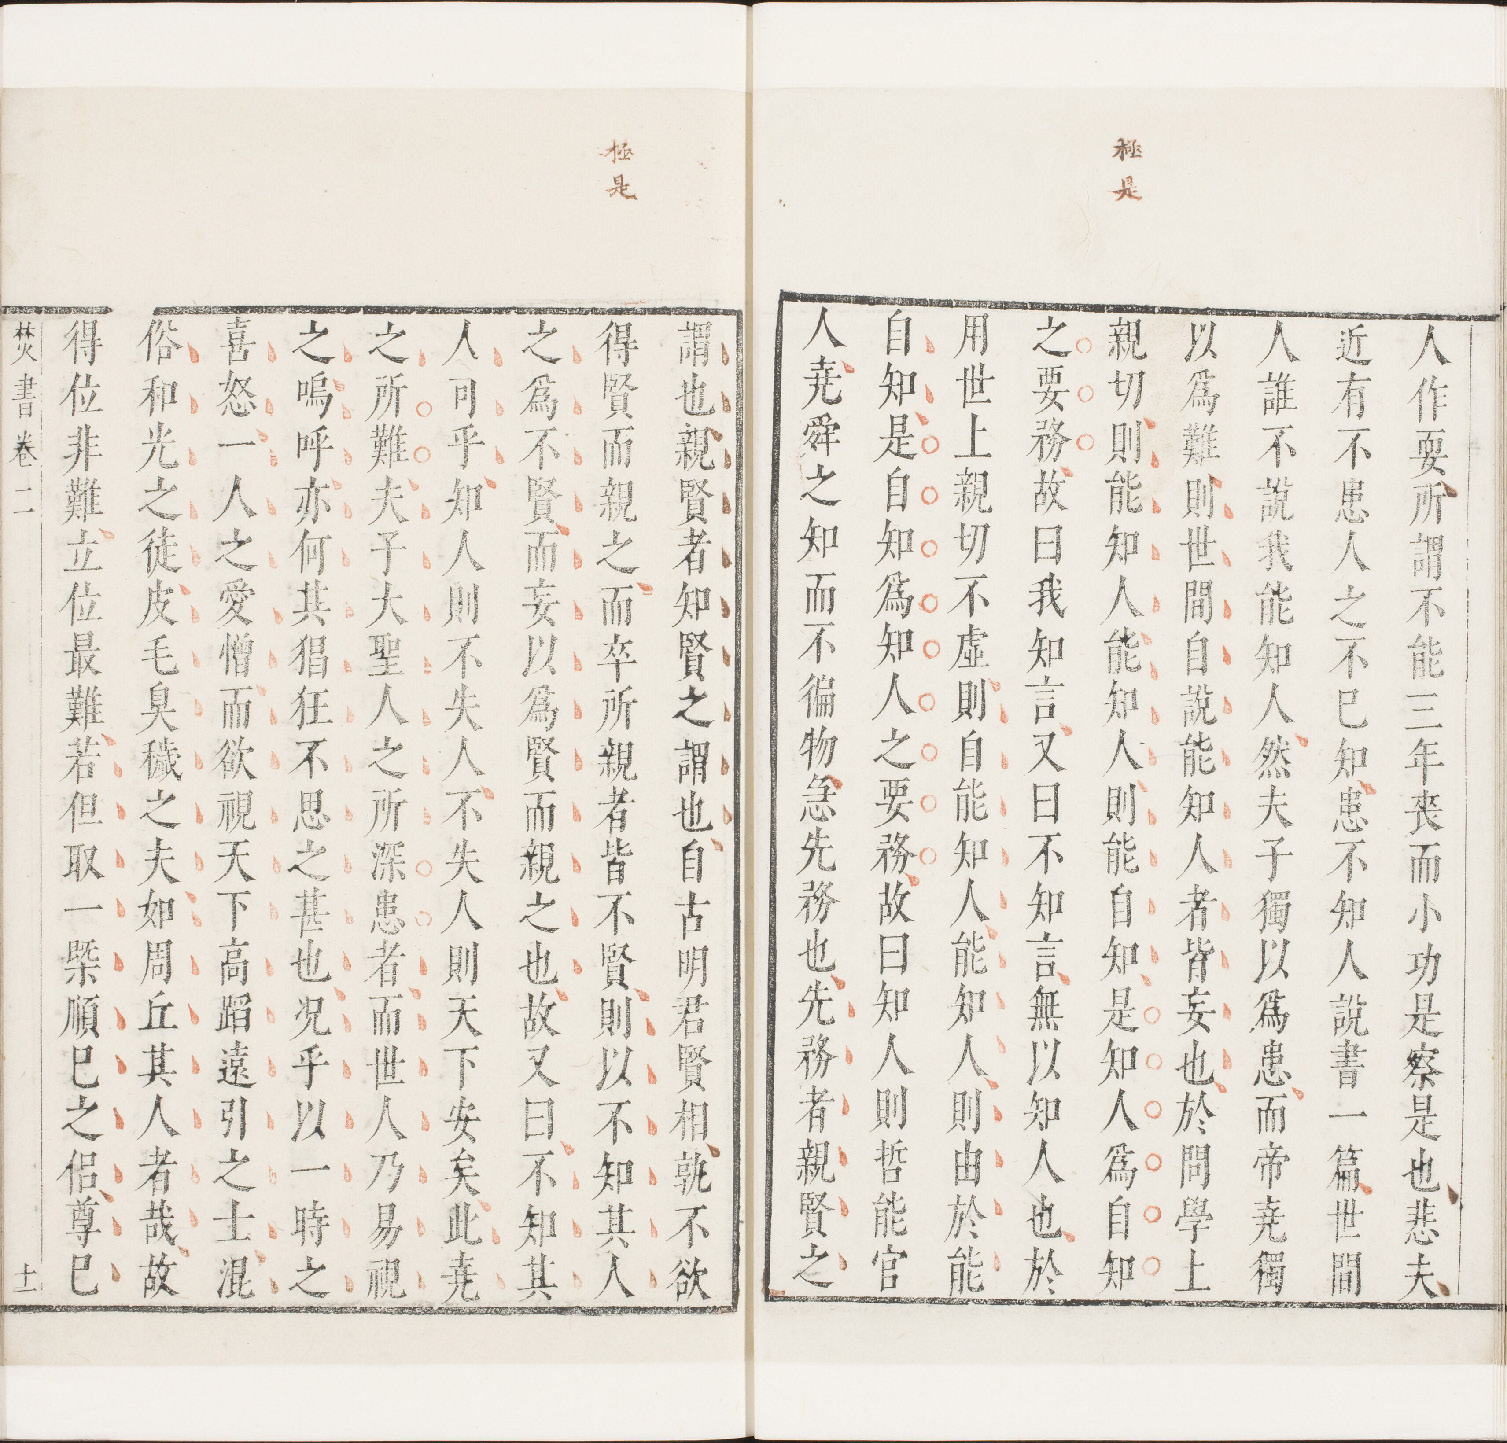 極是
人作耍所謂不能三年喪而小功是察是也悲夫
近有不患人之不已知患不知人說書一篇世間
人誰不說我能知人然夫子獨以爲患而帝堯獨
以爲難則世間自說能知人者皆妄也於問學上
親切則能知人能知人則能自知是知人爲自知
之要務故曰我知言又曰不知言無以知人也於
用世上親切不虛則自能知人能知人則由於能
自知是自知爲知人之要務故曰知人則哲能官
人堯舜之知而不徧物急先務也先務者親賢之
極是
謂也親賢者知賢之謂也自古明君賢相孰不欲
得賢而親之而卒所親者皆不賢則以不知其人
之爲不賢而妄以爲賢而親之也故又曰不知其
人可乎知人則不失人不失人則天下安矣此堯
之所難夫子大聖人之所深患者而世人乃易視
之嗚呼亦何其猖狂不思之甚也况乎以一時之
喜怒一人之愛憎而欲視天下高蹈遠引之士混
俗和光之徒皮毛臭穢之夫如周丘其人者哉故
得位非難立位最難若但取一槩順巳之侶尊巳
焚書 卷二 十一